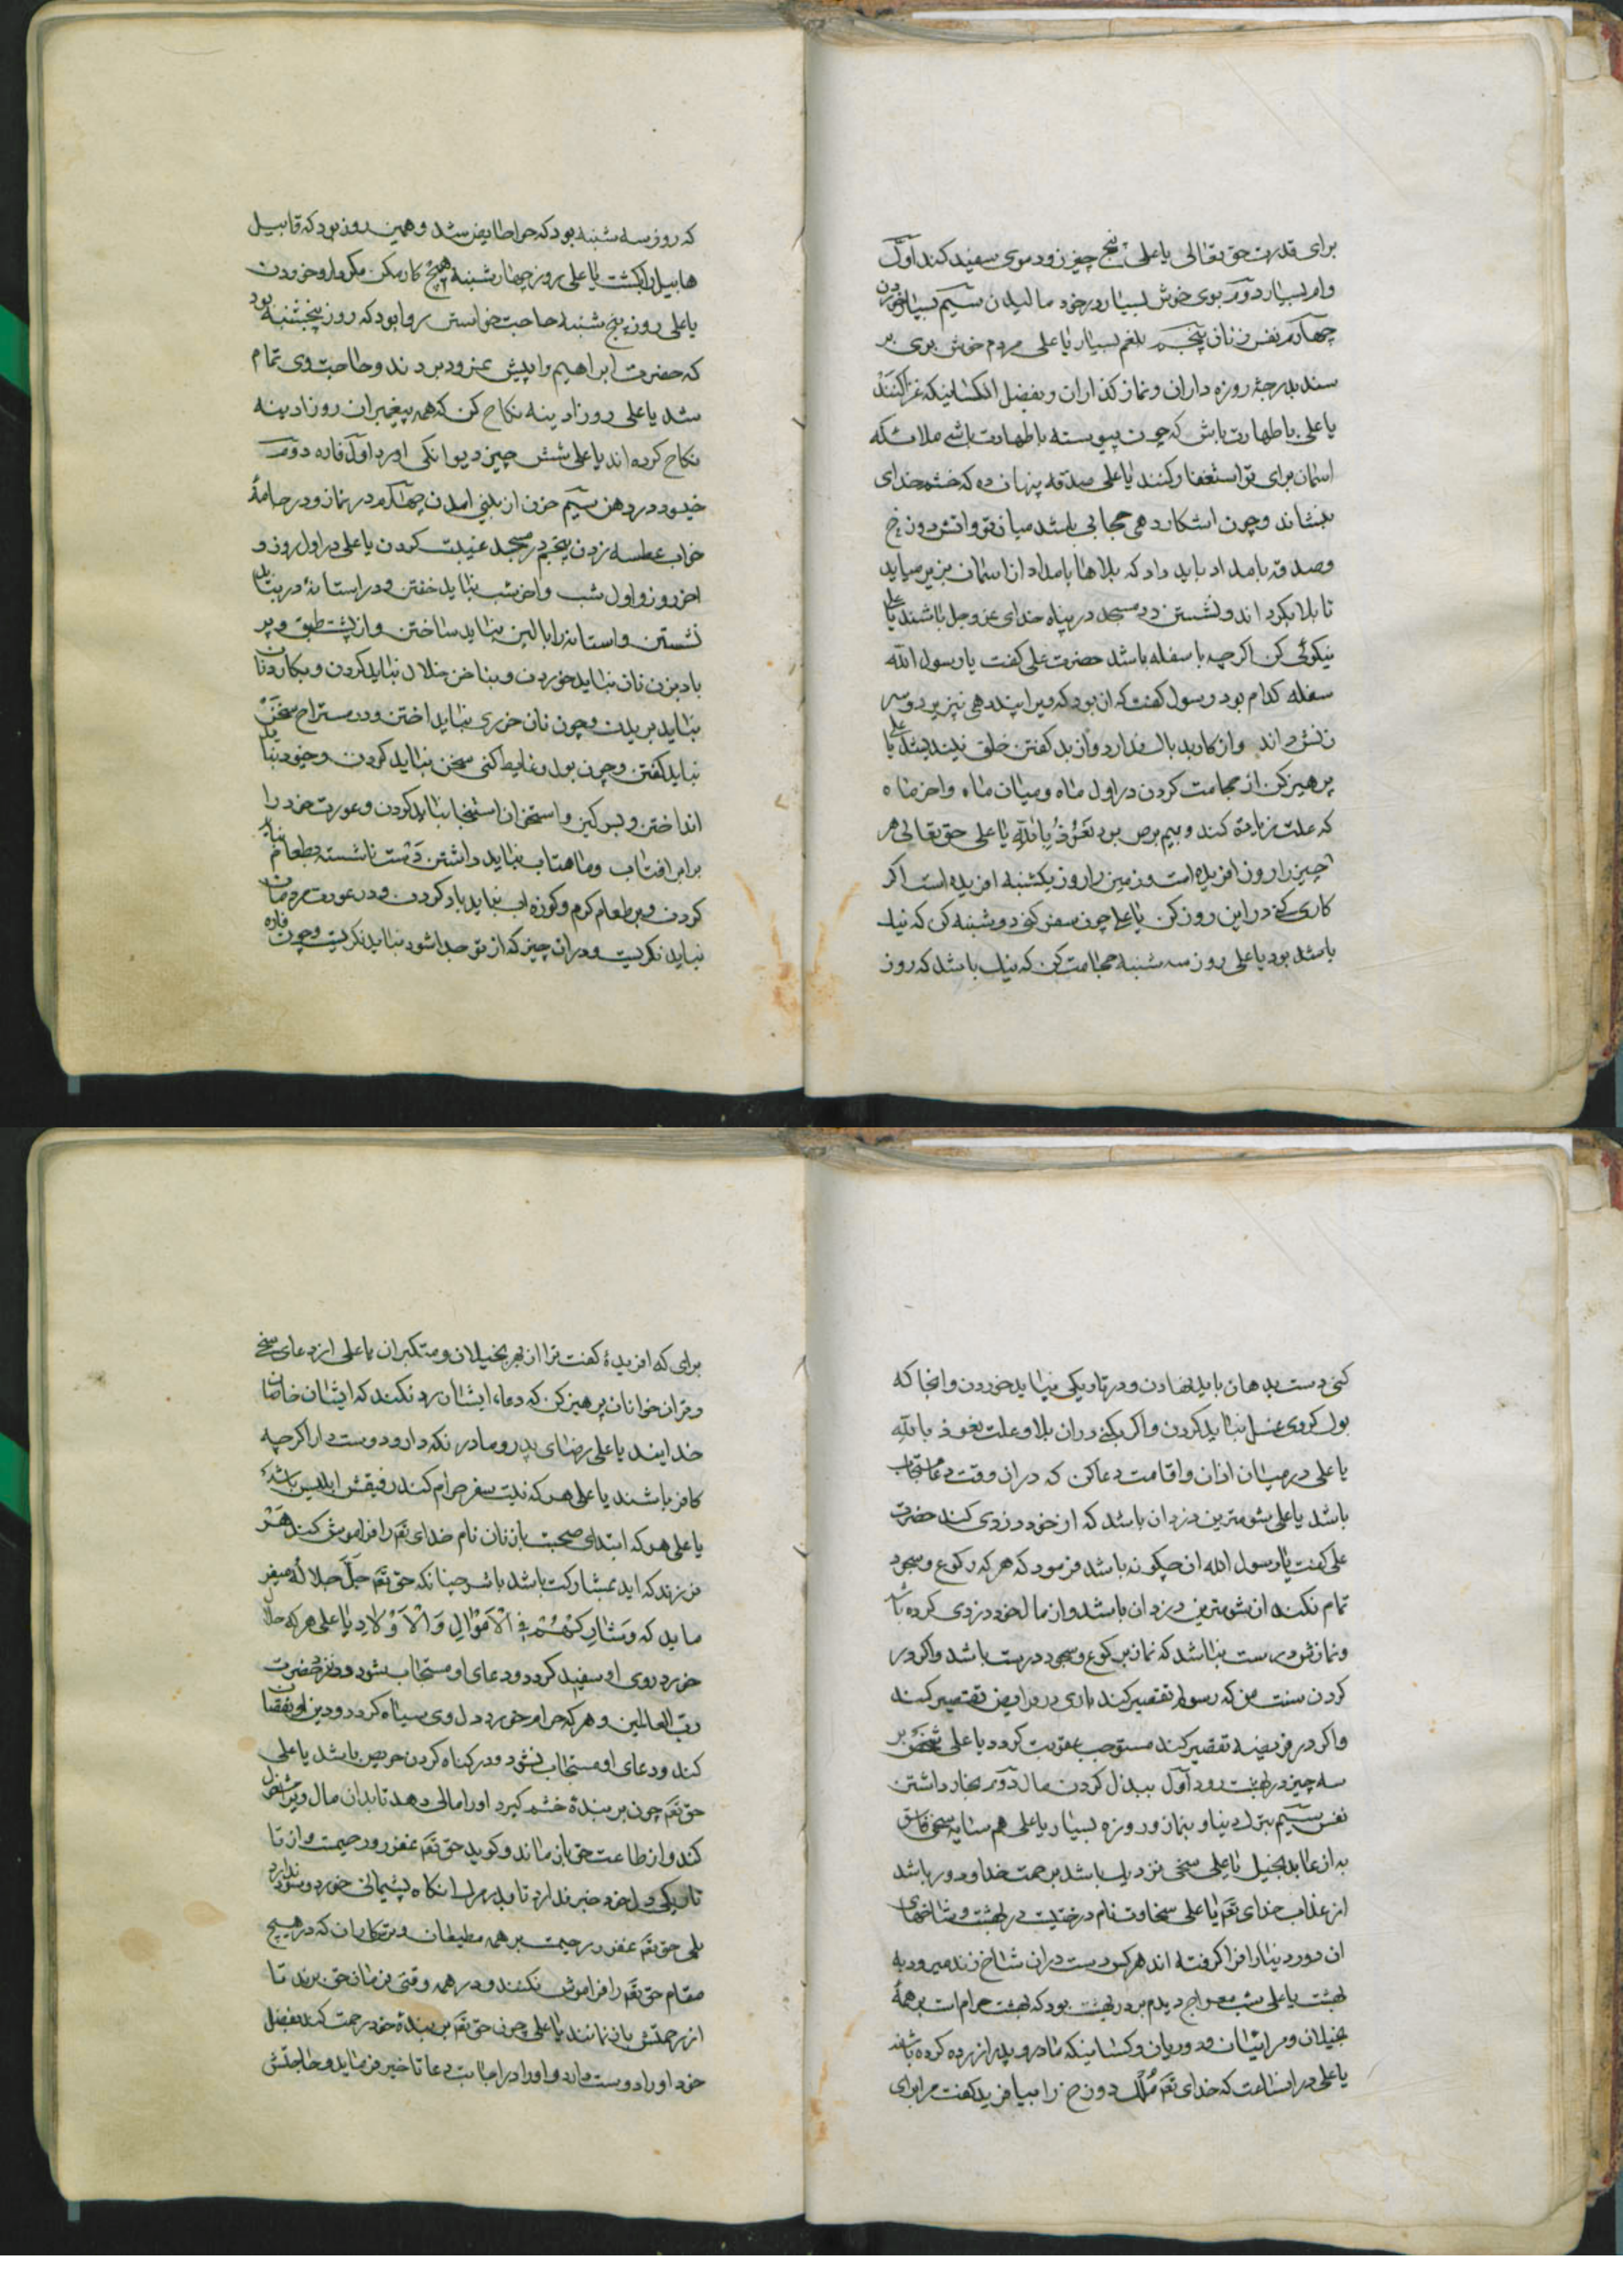 برای قدرت حق تعالی یا علی پنج چیز زود موی سفید کند اول
وام بسیار دوم بوی خوش بسیار در خود مالیدن سیم بسیار خوردن
چهارم نفس زنان پنجم بلغم بسیار یا علی مردم خوش بوی بر
سند بدرجهٔ روزه داران و نماز کذاران و بفضل انکسانیکه غزا کنند
یا علی با طهارت باش که چون پیوسته با طهارت باشی ملائکه
اسمان برای تو استغفار کنند یا علی صدقه پنهان ده که خشم خدای
بنشاند و چون اشکارا دهی حجابی باشد میان تو و اتش دوزخ
و صدقه بامداد باید داد که بلاها بامداد از اسمان بزیر میاید
تا بلا بکرداند و نشستن در مسجد در پناه خدای عز و جل باشند یا علی
نیکوئی کن اکرچه با سفله باشد حضرت علی کفت یا رسول الله
سفله کدام بود رسول کفت که ان بود که ویرا پند دهی نپزیرد و سر
زنش داند و از کار بد باک ندارد و از بد کفتن خلق نیندیشد یا علی
پرهیز کن از مجامعت کردن در اول ماه و میان ماه و اخر ماه
که علت زیاده کند و بیم برص بود نعوذ بالله یا علی حق تعالی هر
چیز را روزی افریده است و زمین را روز یکشنبه افریده است اکر
کاری کنی در این روز کن یا علی چون سفر کنی دوشنبه کن که نیک
باشد بود یا علی روز سه شنبه حجامت کن که نیک باشد که روز
که روز سه شنبه بود که حوا حایض شد و همین روز بود که قابیل
هابیل را بکشت یا علی روز چهارشنبه هیچ کار مکن مکر دارو خوردن
یا علی روز پنج شنبه حاجت خواستن روا بود که روز پنجشنبه بود
که حضرت ابراهیم را پیش نمرود بردند و حاجت وی تمام
شد یا علی روز ادینه نکاح کن که همه پیغمبران روز ادینه
نکاح کرده اند یا علی شش چیز دیوانکی اورد اول فاژه دوم
خیو در دهن سیم خون از بینی امدن چهارم در نماز و در جامهٔ
خواب عطسه زدن پنجم در مسجد غیبت کردن یا علی در اول روز و
اخر روز و اول شب و اخر شب نباید خفتن و در استانهٔ در نباید
نشستن و استانه را بالین نباید ساختن و از پشت طبق و بر
بادبزن نان نباید خوردن و بناخن خلال نباید کردن و بکارد نان
نباید بریدن و چون نان خوری نباید اختن و در مستراح سخن
نباید کفتن و چون بول و غایط کنی سخن نباید کردن و خیو نباید
انداختن و بسرکین و استخوان استنجا نباید کردن و عورت خود را
برابر افتاب و ماهتاب نباید داشتن دست ناشسته بطعام نباید
کردن و بر طعام کرم و کوزه اب نباید باد کردن و در عورت مردمان
نباید نکریست و در ان چیز که از تو جدا شود نباید نکریست و چون فاژه
کنی دست بدهان باید نهادن و در تاریکی نباید خوردن و انجا که
بول کردی غسل نباید کردن و اکر بکنی دران بلا و علت نعوذ بالله
یا علی در میان اذان و اقامت دعا کن که دران وقت دعا مستجاب
باشد یا علی شومترین دزدان باشد که از خود دزدی کند حضرت
علی کفت یا رسول الله ان چکونه باشد فرمود که هر که رکوع و سجود
تمام نکند ان شومترین دزدان باشد و از مال خود دزدی کرده باشد
و نمازش درست نباشد که نماز برکوع و سجود درست باشد و اکر در
کردن سنت من که رسولم تقصیر کند باری در فرایض تقصیر نکند
و اکر در فریضه تقصیر کند مستوجب عقوبت کردد یا علی شخص بر
سه چیز در بهشت رود اول ببذل کردن مال دوم بخار داشتن
نفس سیم بترک دنیا و بنماز و روزه بسیار یا علی همسایه سخی فاسق
به از عابد بخیل یا علی سخی نزدیک باشد برحمت خدا و دور باشد
از عذاب خدای تعم یا علی سخاوت نام درختیست در بهشت و شاخهای
ان دور دنیا را فرا کرفته اند هر کس دست دران شاخ زند میرود به
بهشت یا علی شب معراج دیدم بر در بهشت بود که بهشت حرام است بر همهٔ
بخیلان و مرائیان و دورویان و کسانیکه مادر و پدر ازرده کرده باشند
یا علی در انساعت که خدای تعم ملک دوزخ را بیافرید کفت مرا برای
برای که افریدهٔ کفت ترا از بهر بخیلان و متکبران یا علی از دعای سخی
و قران خوانان پرهیز کن که دعاء ایشان رد نکند که ایشان خاصان
خدایند یا علی رضای پدر و مادر نکه دار و دوست دار اکرچه
کافر باشند یا علی هر که نیت سفر حرام کند رفیقش ابلیس باشد
یا علی هر که ابتدای صحبت با زنان نام خدای تعم را فراموش کند هر
فرزند که اید بمشارکت باشد باشر چنانکه حق تعم جل جلاله میفر
ماید که وشارکهم فی الاموال والاولاد یا علی هر که حلال
خورد روی او سفید کردد و دعای او مستجاب شود و نزد حضرت
رب العالمین و هر که حرام خورد دل وی سیاه کردد و دین او نقصان
کند و دعای او مستجاب نشود و در کناه کردن حریص باشد یا علی
حق تعم چون بر بندهٔ خشم کیرد او را مالی دهد تا بدان مال ویرا مشغول
کند و از طاعت حق باز ماند و کوید حق تعم غفور و رحیمست و از تا
تاریکی دل خود خبر ندارد تا بدر مرک انکاه پشیمانی خورد و سود ندارد
بلی حق تعم غفور رحیمست بر همه مطیعان و ترسکاران که در هیچ
مقام حق تعم را فراموش نکنند و در همه وقتی فرمان حق برند تا
از رحمتش باز نمانند یا علی چون حق تعم بر بندهٔ خود رحمت کند بفضل
خود او را دوست دارد و او را در اجابت دعا تاخیر فرماید و حاجتش